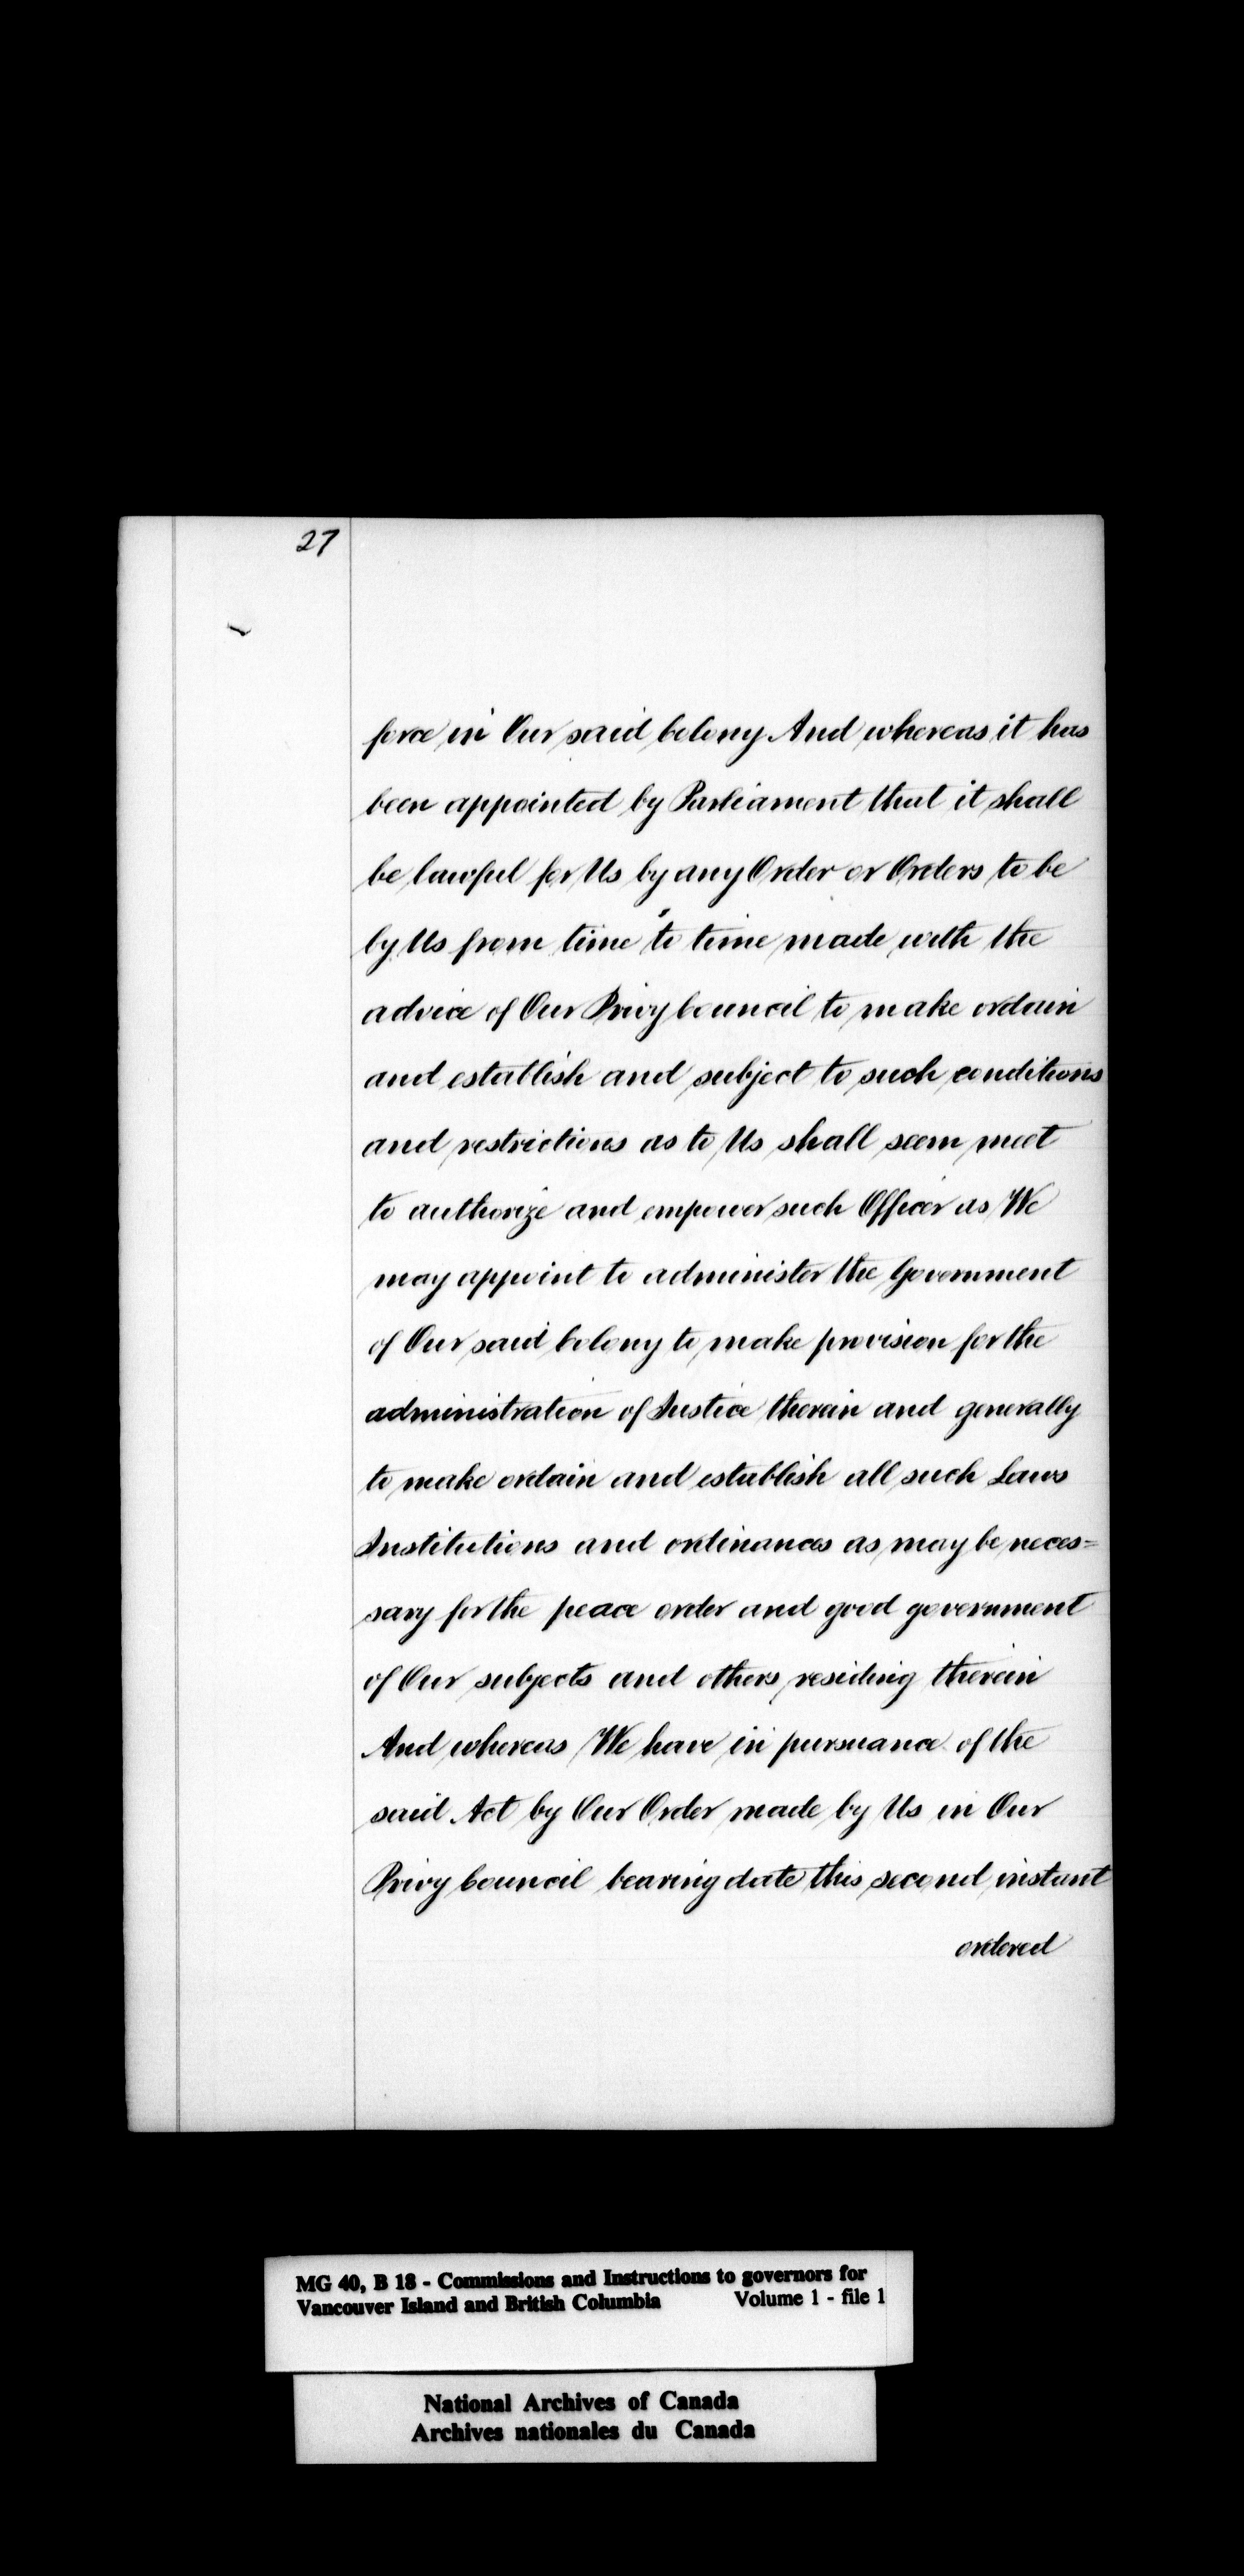 27
force in Our said Colony And whereas it has
been appointed by Parliament that it shall
be lawful for Us by any Order or Orders to be
by Us from time to time made with the
advice of Our Privy Council to make ordain
and establish and subject to such conditions
and restrictions as to Us shall seem meet
to authorize and empower such Officer as We
may appoint to administer the Government
of Our said Colony to make provision for the
administration of Justice therein and generally
to make ordain and establish all such Laws
Institutions and ordinances as may be neces=
sary for the peace order and good government
of Our subjects and others residing therein
And whereas We have in pursuance of the
said Act by Our Order made by Us in Our
Privy Council bearing date this second instant
ordered
MG 40, B 18 - Commissions and Instructions to governors for
Vancouver Island and British Columbia Volume 1 - file 1
National Archives of Canada
Archives nationales du Canada